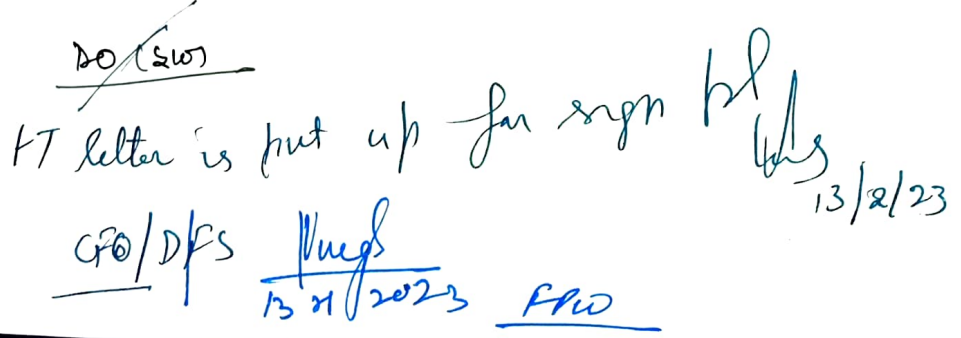 DO (SW)
FT letter is put up for sign pl
13/2/23
CFO/DFS
13 2023 FPW